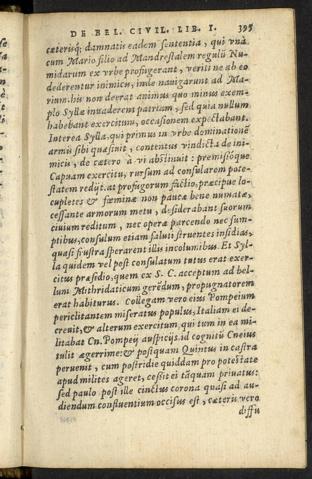 DE BEL. CIVIL. LIB. I. 395
cæterisq; damnatis eadem sententia, qui vnà
cum Mario filio ad Mandrestalem regulū Nu-
midarum ex vrbe profugerant, veriti ne ab eo
dederentur inimicis, inde nauigarunt ad Ma-
rium. his non deerat animus quo minus exem-
plo Syllæ inuaderent patriam, sed quia nullum
habebant exercitum, occasionem expectabant.
Interea Sylla, qui primus in vrbe dominationē
armis sibi quæsiuit, contentus vindicta de ini-
micis, de cætero à vi abstinuit: premisióque
Capuam exercitu, rursum ad consularem pote-
statem redijt. at profugorum factio, præcipue lo-
cupletes & fœminæ non paucæ bene numatæ,
cessante armorum metu, desiderabant suorum
ciuium reditum, nec operæ parcendo nec sum-
ptibus, consulum etiam saluti struentes insidias,
quasi frustra sperarent illis incolumibus. Et Syl-
la quidem vel post consulatum tutus erat exer-
citus præsidio, quem ex S. C. acceptum ad bel-
lum Mithridaticum gerēdum, propugnatorem
erat habiturus. Collegam vero eius Pompeium
periclitantem miseratus populus, Italiam ei de-
creuit, & alterum exercitum, qui tum in ea mi-
litabat Cn. Pompeij auspicijs. id cognitū Cneius
tulit ægerrime: & postquam Quintus in castra
peruenit, cum postridie quiddam pro potestate
apud milites ageret, cessit ei tāquam priuatus:
sed paulo post ille cinctus corona quasi ad au-
diendum confluentium occisus est, cæteris vero
diffu